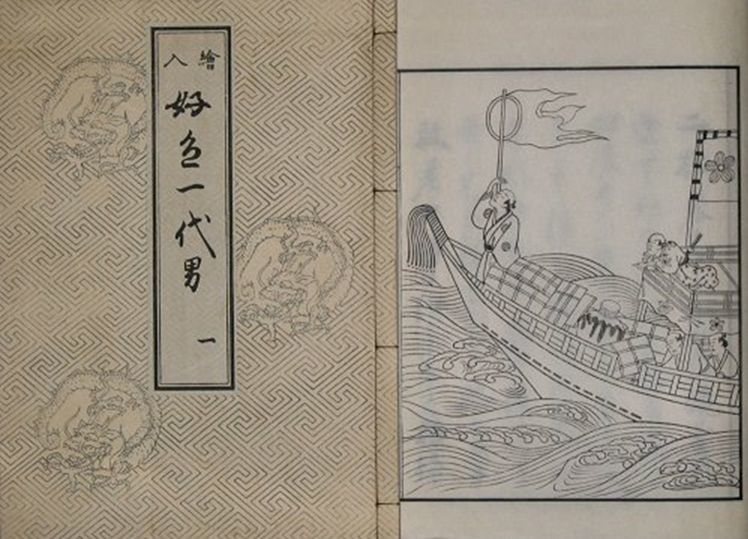 繪入
好色一代男
一